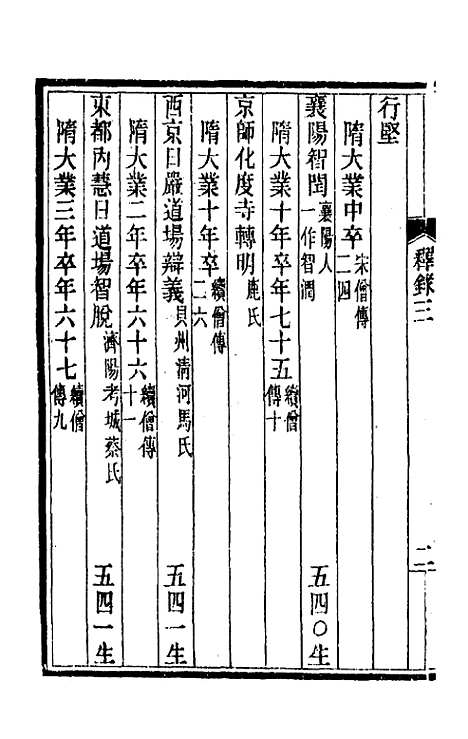 釋錄三
二
行堅
隋大業中卒宋僧傳二四
襄陽智閏襄陽人一作智潤 五四〇生
隋大業十年卒年七十五續僧傳十
京師化度寺轉明鹿氏
隋大業十年卒續僧傳二六
西京日嚴道場辯義貝州清河馬氏 五四一生
隋大業二年卒年六十六續僧傳十一
東都內慧日道場智脫濟陽考城蔡氏 五四一生
隋大業三年卒年六十七續僧傳九